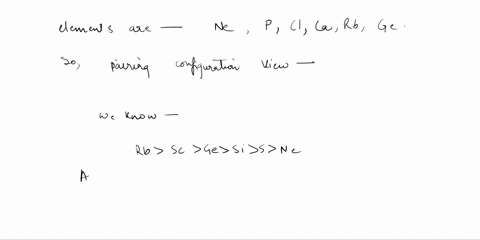 elements are — Ne, P, Cl, Ca, Rb, Ge.
So, pairing configuration view —
We know —
Rb > Sc > Ge > Si > S > Ne
A